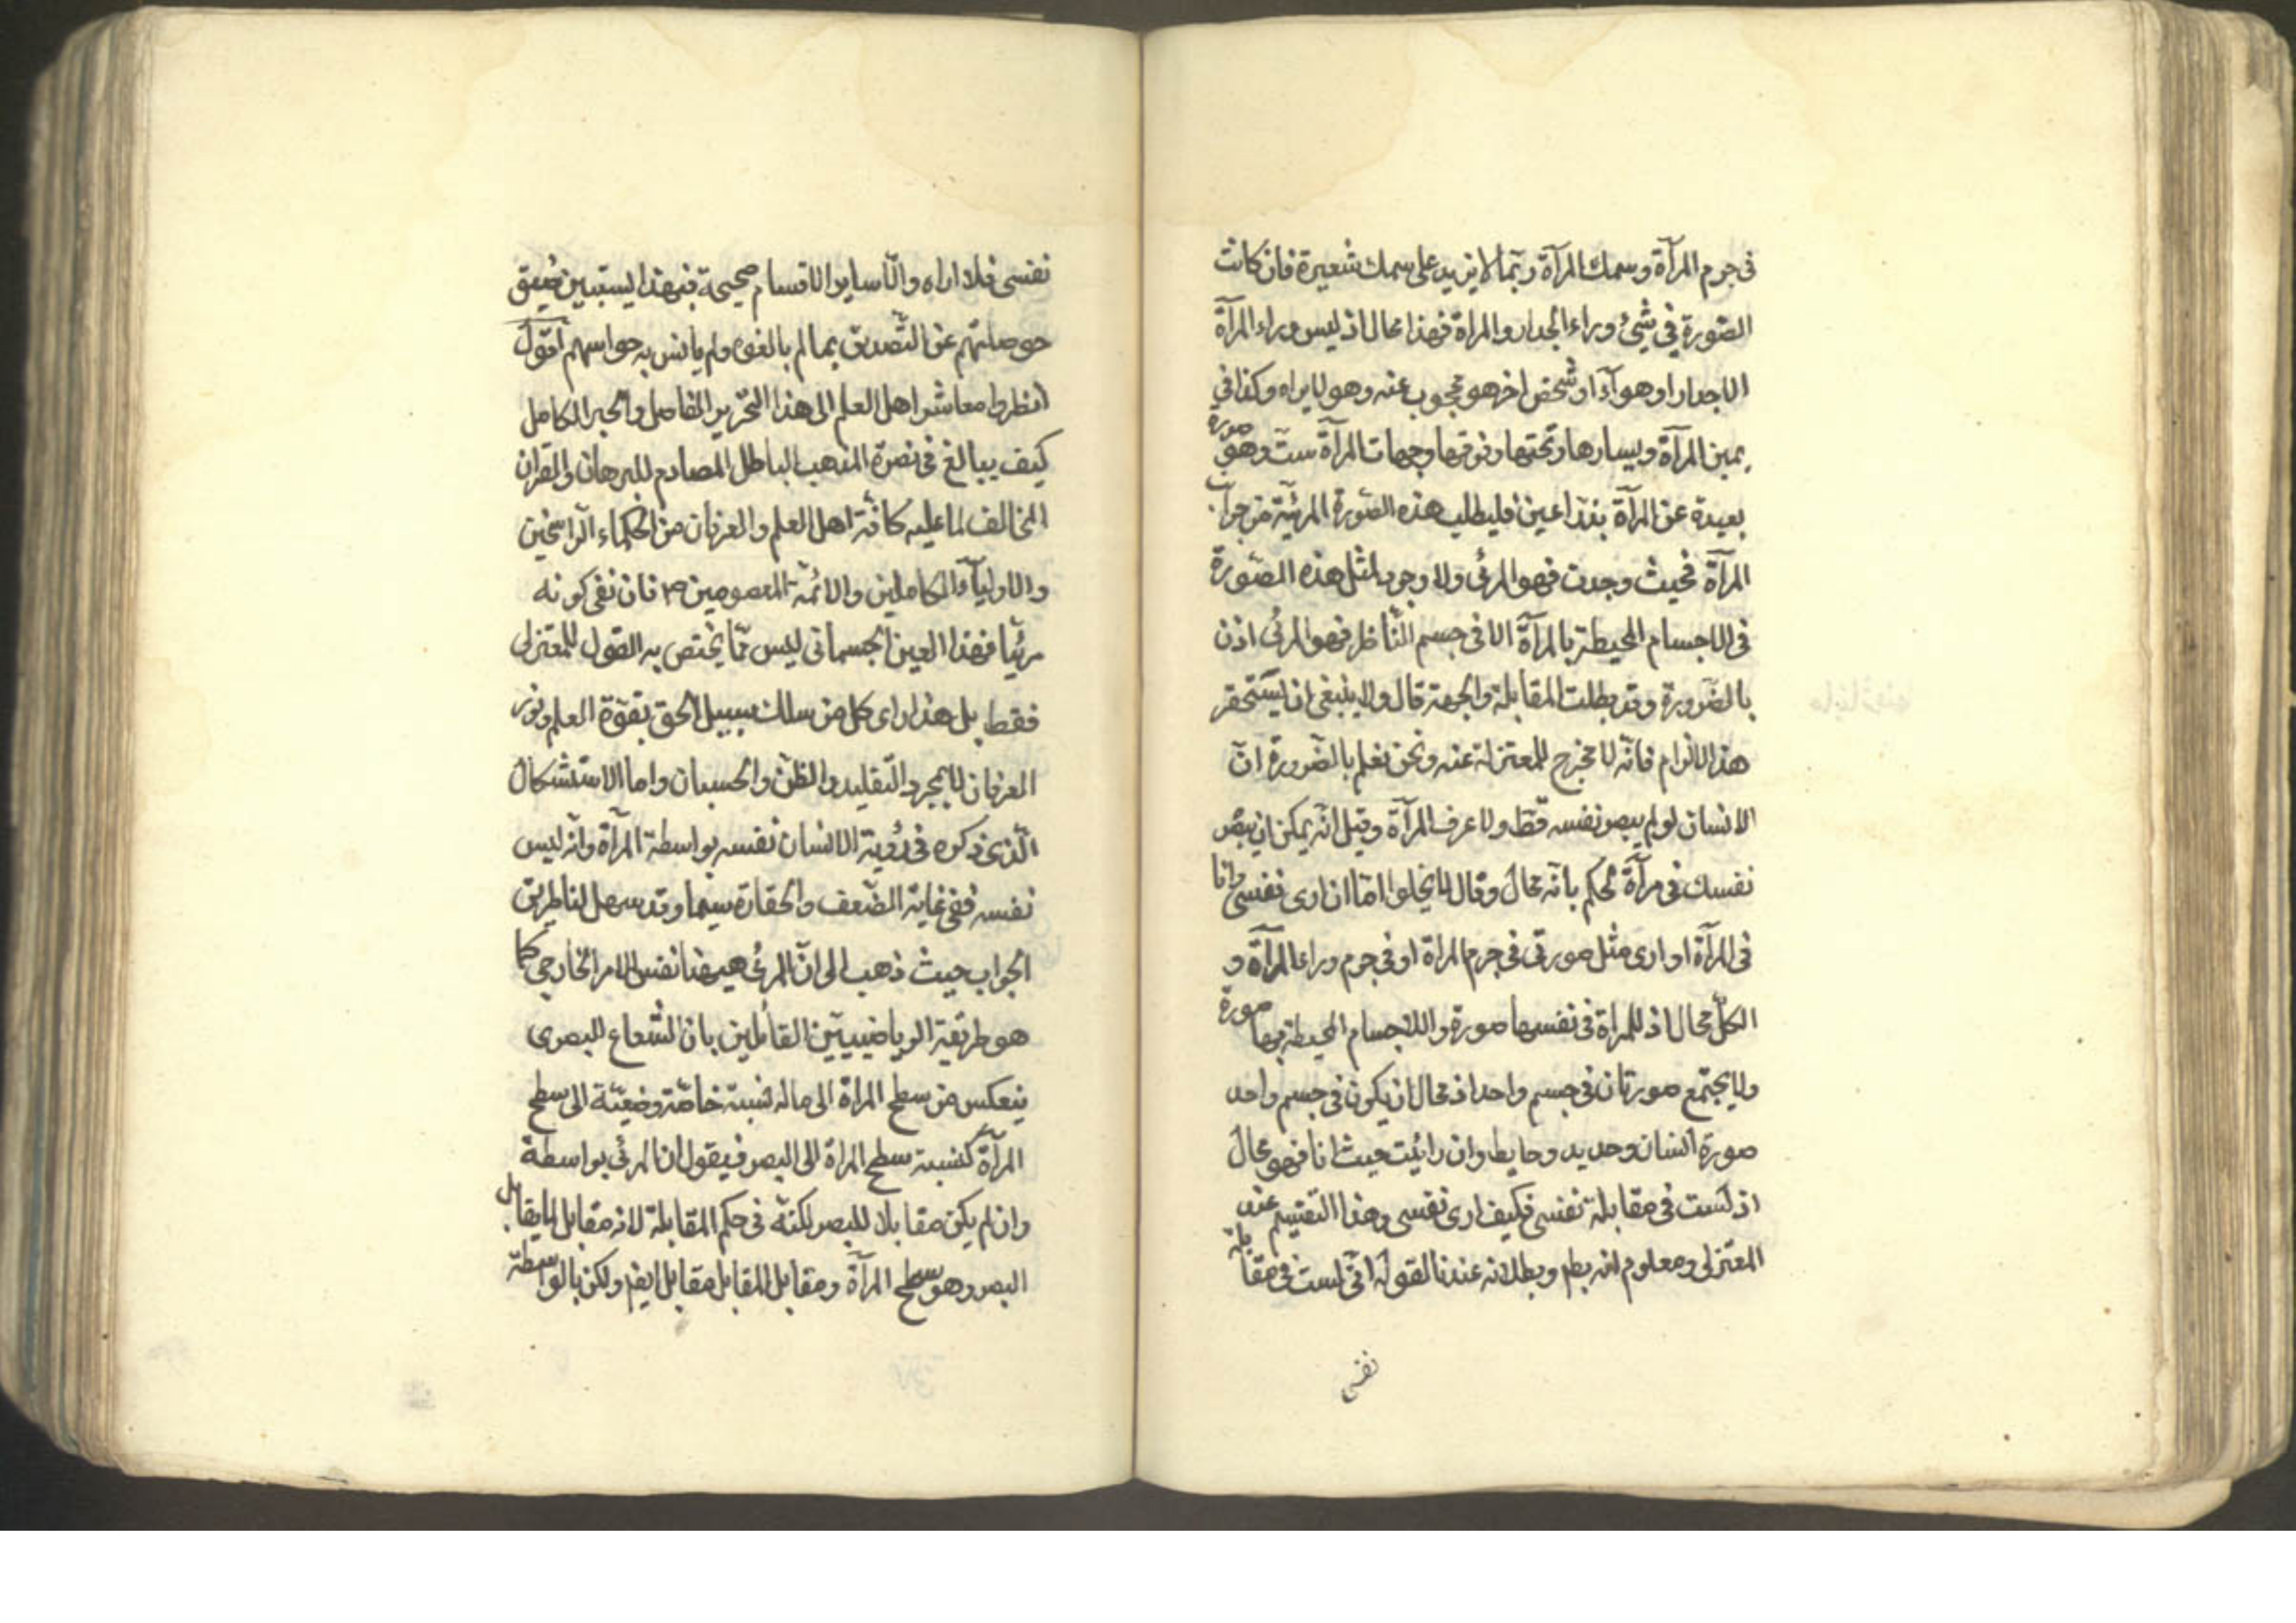 في جرم المرآة وسمك المرآة ربّما لا يزيد على سمك شعيرة فان كانت
الصّورة في شيء وراء الجدار والمراة فهذا محال اذ ليس وراء المرآة
الا جدار او هوآء او شخص اخر هو محجوب عنه وهو لا يراه وكذا في
يمين المرآة ويسارها وتحتها وفوقها وجهات المرآة ست وهو صورة
بعيدة عن المرآة بذراعين فليطلب هذه الصّورة المرئيّة من جوانب
المرآة فحيث وجدت فهو المرئى ولا وجود لمثل هذه الصّورة
في الاجسام المحيطة بالمرآة الا في جسم النّاظر فهو المرئى اذن
بالضّرورة وقد بطلت المقابلة والجهة قال ولا ينبغى ان يستحقر
هذا الالزام فانّه لا مخرج للمعتزلة عنه ونحن نعلم بالضّرورة انّ
الانسان لو لم يبصر نفسه قطّ ولا عرف المرآة وقيل انّه يمكن ان يبصر
نفسك في مرآة لحكم بانّه محال وقال لا يخلوا امّا ان ارى نفسى وانا
في المرآة او ارى مثل صورتى في جرم المراة او في جرم وراء المرآة و
الكلّ محال اذ للمراة في نفسها صورة واللاجسام المحيطة بها صورة
ولا يجتمع صورتان في جسم واحد اذ محال ان يكون في جسم واحد
صورة انسان وحديد وحايط وان رائيت حيث انا فهو محال
اذ لست في مقابلة نفسى فكيف ارى نفسى وهذا التقسيم عند
المعتزلى ومعلوم انه بطم وبطلانه عندنا لقوله انّى لست في مقابلة
نفسى
نفسى فلا اراه والّا ساير الاقسام صحيحة فبهذا يستبين ضيق
حوصلتهم عن التّصديق بما لم يالفوه ولم يانس به حواسهم اقول
انظروا معاشر اهل العلم الى هذا النحّرير الفاضل والحبر الكامل
كيف يبالغ في نصرة المذهب الباطل المصادم للبرهان والقران
المخالف لما عليه كافّة اهل العلم والعرفان من الحكماء الرّاسخين
والاوليآء الكاملين والائمّة المعصومين ع فان نفى كونه
مرئيّا فهذا العين الجسمانى ليس ممّا يختص به القول للمعتزلى
فقط بل هذا راى كل من سلك سبيل الحق بقوّة العلم ونور
العرفان لا بمجرد التّقليد والظنّ والحسبان واما الاستشكال
الّذى ذكره في رؤية الانسان نفسه بواسطة المرآة وانّه ليس
نفسه ففى غاية الضّعف والحقارة سيما وقد سهل لنا طريق
الجواب حيث ذهب الى انّ المرئى هيهنا نفس الامر الخارجى كما
هو طريقة الرياضييّين القائلين بان الشّعاع البصرى
ينعكس من سطح المراة الى ماله نسبة خاصّة وضعيّة الى سطح
المرآة كنسبة سطح المراة الى البصر فيقول ان المرئى بواسطة
وان لم يكن مقابلا للبصر لكنّه في حكم المقابلة لانه مقابل لما يقابل
البصر وهو سطح المرآة ومقابل المقابل مقابل ايض ولكن بالواسطة